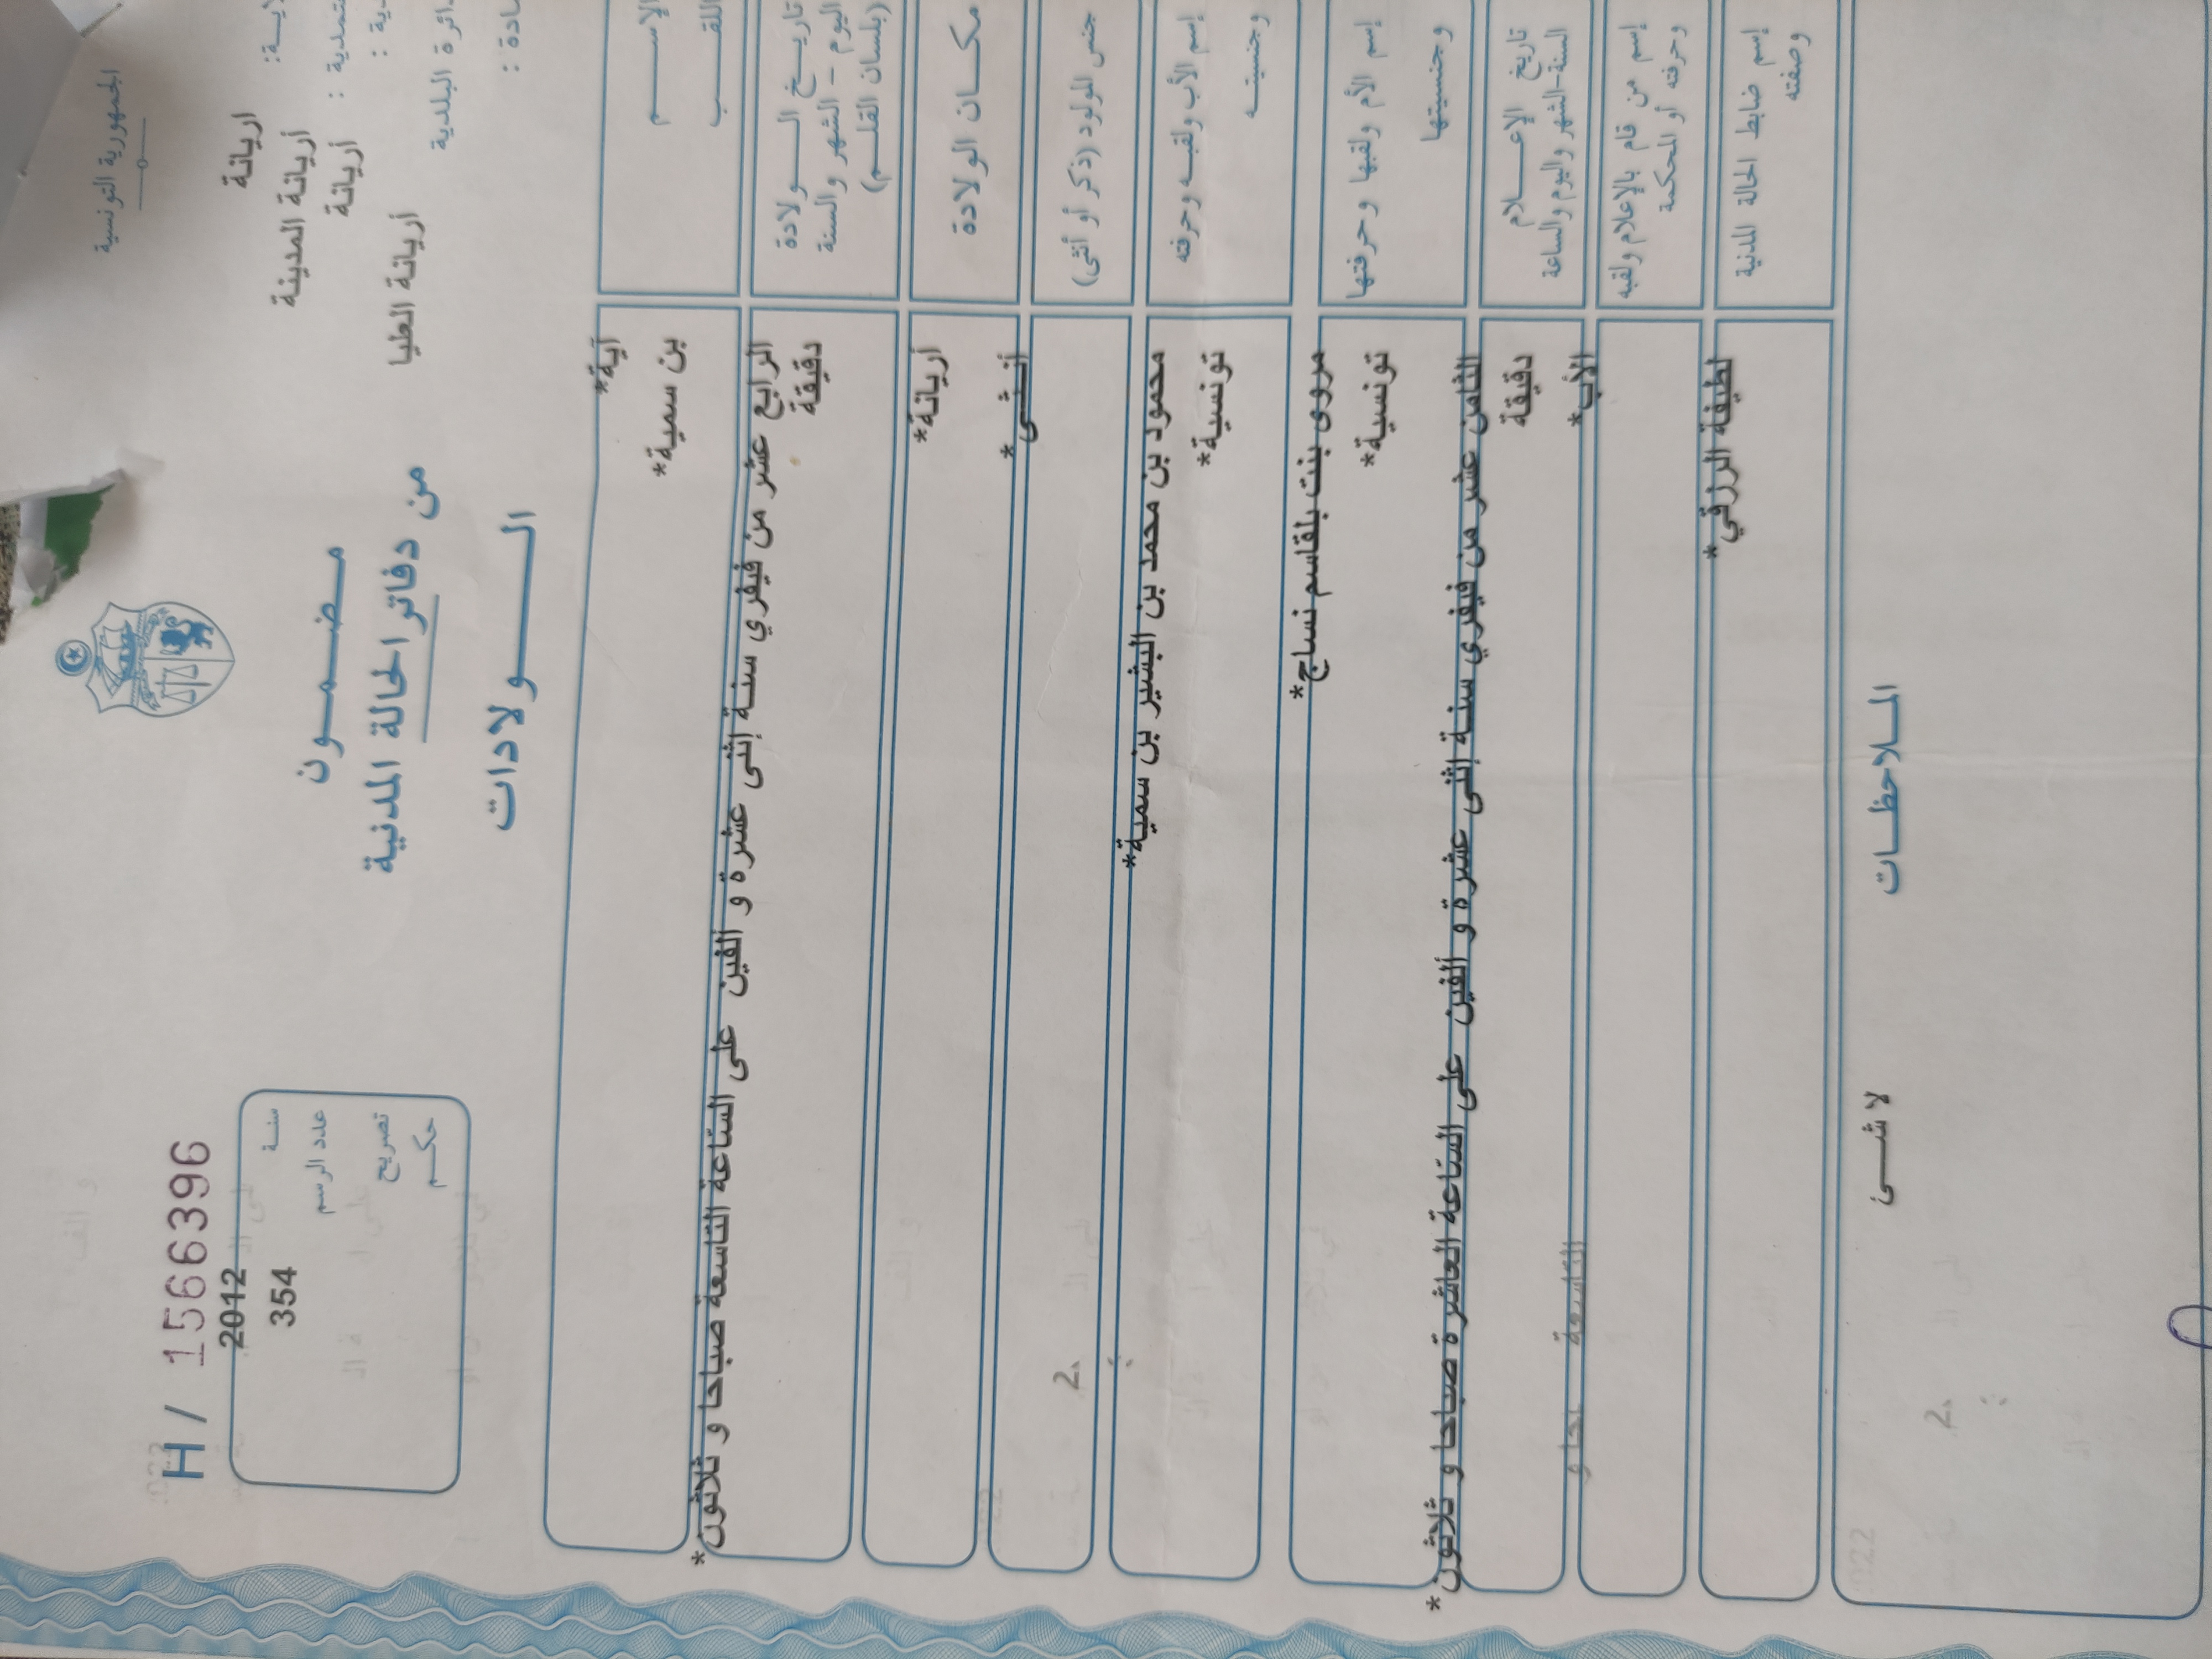 الجمهورية التونسية
اريانة
أريانة المدينة
أريانة
أريانة العليا
H / 1566396
سنة 2012
عدد الرسم 354
تصريح
حكم
مضمون
من دفاتر الحالة المدنية
الولادات
الإسم
آية*
اللقب
بن سمية*
تاريخ الولادة
اليوم - الشهر والسنة
(بلسان القلم)
الرابع عشر من فيفري سنة إثنى عشرة و ألفين على الساعة التاسعة صباحا و ثلاثون*
دقيقة
مكان الولادة
أريانة*
جنس المولود (ذكر أو أنثى)
أنثى*
إسم الأب ولقبه وحرفته
محمود بن محمد بن البشير بن سمية*
وجنسيته
تونسية*
إسم الأم ولقبها وحرفتها
مروى بنت بلقاسم نساج*
وجنسيتها
تونسية*
تاريخ الإعلام
السنة-الشهر واليوم والساعة
الثامن عشر من فيفري سنة إثنى عشرة و ألفين على الساعة العاشرة صباحا و ثلاثون*
دقيقة
إسم من قام بالإعلام ولقبه
وحرفته أو المحكمة
الأب*
إسم ضابط الحالة المدنية
وصفته
لطيفة الرزقي*
الملاحظات
لا شئ